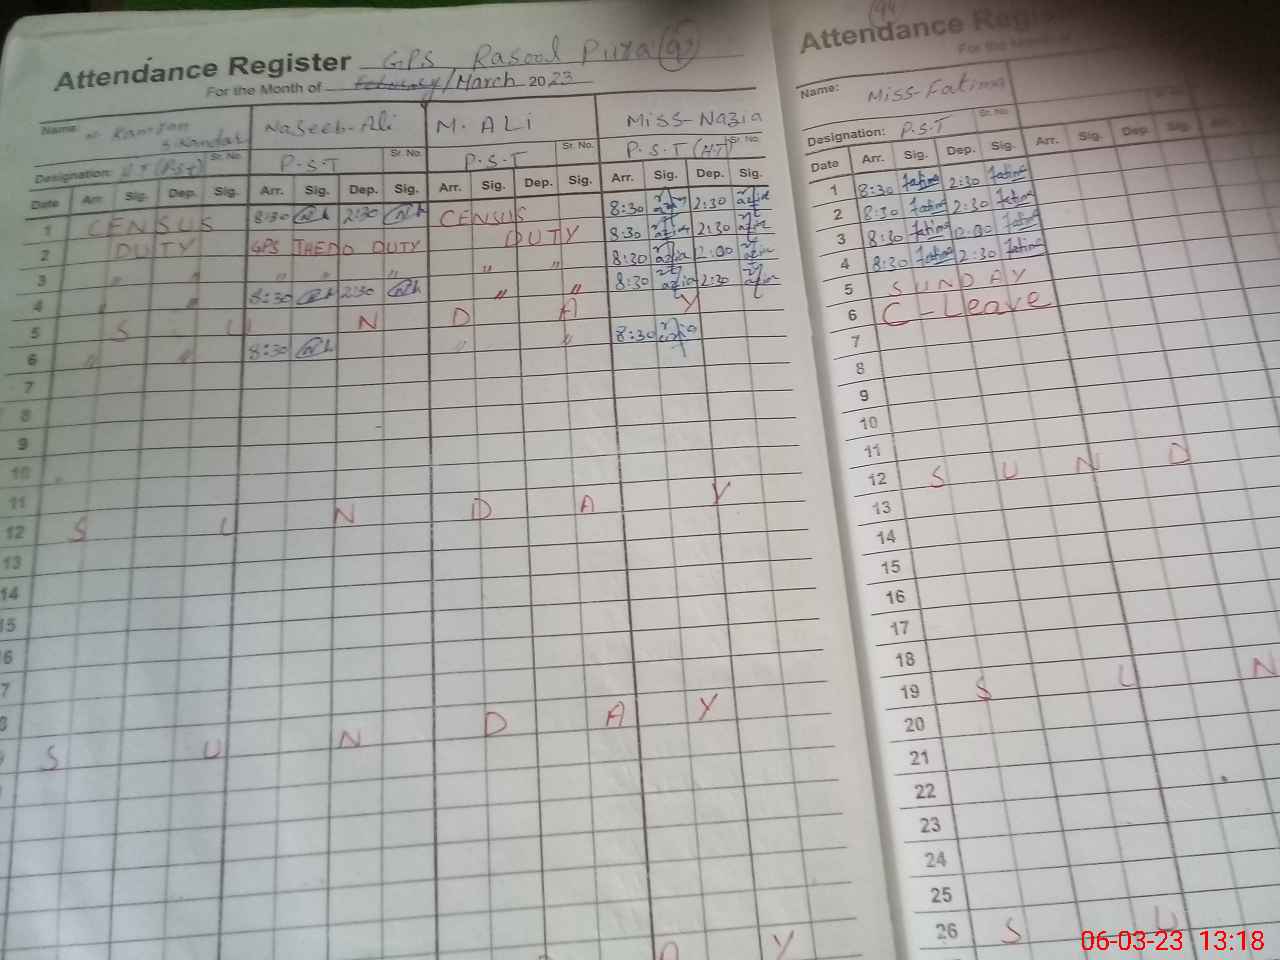 Attendance Register GPS Rasool Pura (g)
For the Month of February/March 2023
Name: Sikandar Naseeb-Ali M. ALi Miss-Nazia
Designation: Sr. No. P.S.T Sr. No. P.S.T Sr. No. P.S.T (H.T) Sr. No.
Date Arr. Sig. Dep. Sig. Arr. Sig. Dep. Sig. Arr. Sig. Dep. Sig. Arr. Sig. Dep. Sig.
1 CENSUS 8:30 2:30 CENSUS 8:30 2:30
2 DUTY GPS THEDO DUTY DUTY 8:30 2:30
3 " " " " " " " 8:30 2:00
4 " " 8:30 2:30 " " 8:30 2:30
5 S U N D A Y
6 " " 8:30 " " 8:30
7
8
9
10
11
12 S U N D A Y
13
14
15
6
7
8
S U N D A Y
Y
Attendance Register
For the Month of
Name: Miss-Fatima
Designation: P.S.T Sr. No.
Date Arr. Sig. Dep. Sig. Arr. Sig. Dep. Sig.
1 8:30 Fatima 2:30 Fatima
2 8:30 Fatima 2:30 Fatima
3 8:30 Fatima Fatima
4 8:30 Fatima 2:30 Fatima
5 SUNDAY
6 C-Leave
7
8
9
10
11
12 S U N D
13
14
15
16
17
18
19 S U N
20
21
22
23
24
25
26 S U
06-03-23 13:18